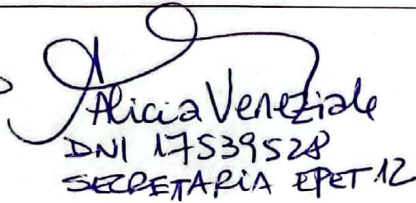 Alicia Veneziale
DNI 17539528
SECRETARIA EPET 12